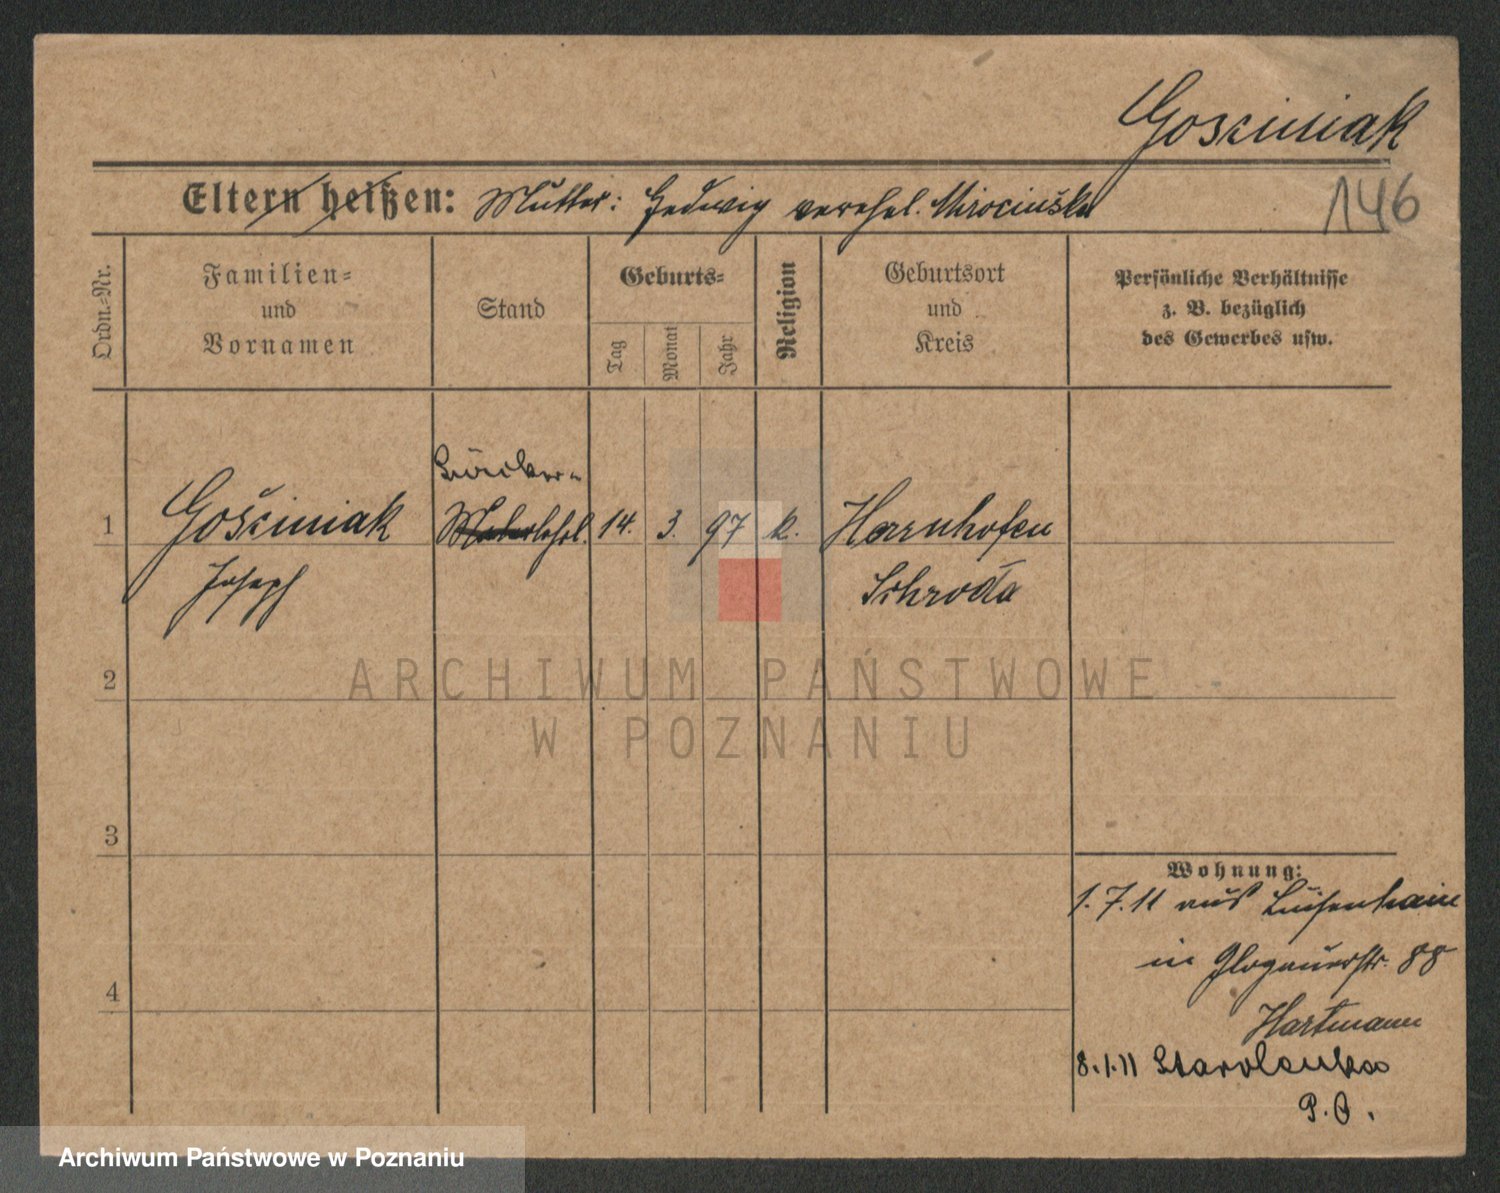 Gosciniak
Eltern heißen: Mutter: Hedwig verehel. Mirocinśka
146
Ordn.-Nr.
Familien-
und
Vornamen
Stand
Geburts-
Tag
Monat
Jahr
Religion
Geburtsort
und
Kreis
Persönliche Verhältnisse
z. B. bezüglich
des Gewerbes usw.
1
Gościniak
Joseph
Bäcker-
Malerlehrl.
14.
3.
97
k.
Herrnhofen
Schroda
2
3
4
Wohnung:
1.7.11 aus Luisenhain
in Glogauerstr. 88
Hartmann
8.1.11 Starolenka
P.O.
ARCHIWUM PAŃSTWOWE
W POZNANIU
Archiwum Państwowe w Poznaniu